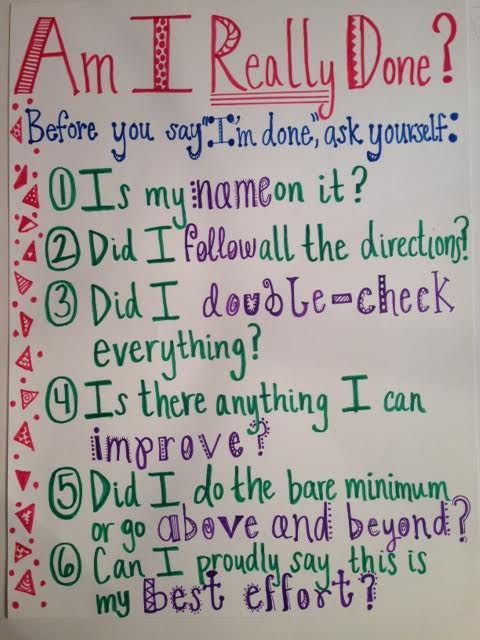 Am I Really Done?
Before you say "I'm done", ask yourself:
1 Is my name on it?
2 Did I follow all the directions?
3 Did I double-check
everything?
4 Is there anything I can
improve?
5 Did I do the bare minimum
or go above and beyond?
6 Can I proudly say this is
my best effort?